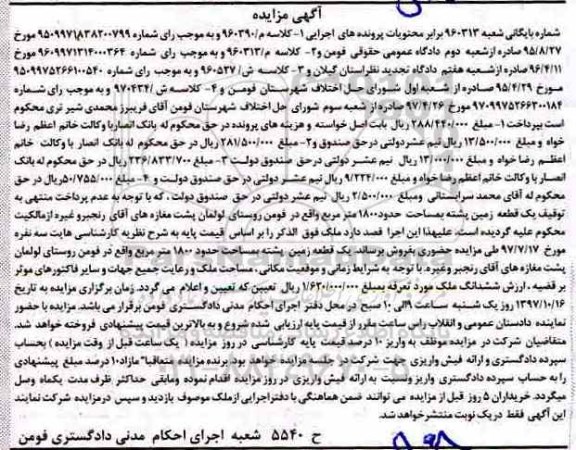 آگهی مزایده
شماره بایگانی شعبه ۹۶۰۳۱۳ برابر محتویات پرونده های اجرایی ۱- کلاسه م/۹۶۰۳۹۰ و به موجب رای شماره ۹۵۰۹۹۷۱۸۳۸۲۰۰۷۹۹ مورخ
۹۵/۸/۲۷ صادره ازشعبه دوم دادگاه عمومی حقوقی فومن و۲- کلاسه م/۹۶۰۳۱۳ و به موجب رای شماره ۹۶۰۹۹۷۱۳۱۴۰۰۰۳۶۴ مورخ
۹۶/۴/۱۱ صادره ازشعبه هفتم دادگاه تجدید نظراستان گیلان و ۳- کلاسه ش/ ۹۶۰۵۲۷ و به موجب رای شماره ۹۵۰۹۹۷۵۲۶۶۱۰۰۵۴۰
مورخ ۹۵/۴/۲۹ صادره از شعبه اول شورای حل اختلاف شهرستان فومن و ۴- کلاسه ش/۹۷۰۴۳۴ و به موجب رای شماره
۹۷۰۹۹۷۵۲۶۶۳۰۰۱۸۴ مورخ ۹۷/۴/۲۶ صادره از شعبه سوم شورای حل اختلاف شهرستان فومن آقای فریبرز محمدی شیر تری محکوم
است بپرداخت ۱- مبلغ ۷۸۸/۴۴۰/۰۰۰ ریال بابت اصل خواسته و هزینه های پرونده در حق محکوم له بانک انصار با وکالت خانم اعظم رضا
خواه و مبلغ ۱۳/۵۰۰/۰۰۰ ریال نیم عشر دولتی درحق صندوق و۲- مبلغ ۲۸۱/۵۰۰/۰۰۰ ریال در حق محکوم له بانک انصار با وکالت خانم
اعظم رضا خواه و مبلغ ۱۳/۰۰۰/۰۰۰ ریال نیم عشر دولتی درحق صندوق دولت ۳- مبلغ ۲۳۶/۸۳۳/۷۰۰ ریال در حق محکوم له بانک
انصار با وکالت خانم اعظم رضا خواه و مبلغ ۹/۲۲۴/۰۰۰ ریال نیم عشر دولتی در حق صندوق دولت و ۴- مبلغ ۵۰/۷۵۵/۰۰۰ ریال در حق
محکوم له آقای محمد سرابستانی ومبلغ ۲/۵۰۰/۰۰۰ ریال نیم عشر دولتی در حق صندوق دولت ، که با توجه به عدم پرداخت منتهی به
توقیف یک قطعه زمین پشته بمساحت حدود۱۸۰۰ متر مربع واقع در فومن روستای لولمان پشت مغازه های آقای رنجبرو غیره ازمالکیت
محکوم علیه گردیده است. علیهذا این اجرا قصد دارد ملک فوق الذکر را بر اساس قیمت پایه به شرح نظریه کارشناسی هایت سه نفره
۹۷/۷/۱۷ طی مزایده حضوری بفروش برساند. یک قطعه زمین پشته بمساحت حدود ۱۸۰۰ متر مربع واقع در فومن روستای لولمان
پشت مغازه های آقای رنجبر وغیره. با توجه به شرایط زمانی و موقعیت مکانی، مساحت ملک و رعایت جمیع جهات و سایر فاکتورهای موثر
بر قضیه ، ارزش ششدانگ ملک مورد تعرفه بمبلغ ۱/۶۳۰/۰۰۰/۰۰۰ ریال تعیین که تعیین و اعلام می گردد. زمان برگزاری مزایده به تاریخ
۱۳۹۷/۱۰/۱۶ روز یک شنبه ساعت ۹الی ۱۰ صبح در محل دفتر اجرای احکام مدنی دادگستری فومن برقرار می باشد. مزایده با حضور
نماینده دادستان عمومی و انقلاب راس ساعت مقرر از قیمت پایه ارزیابی شده شروع و به بالاترین قیمت پیشنهادی فروخته خواهد شد.
متقاضیان شرکت در مزایده موظف به واریز ۱۰ درصد قیمت پایه کارشناسی در روز مزایده ( یک ساعت قبل از وقت مزایده ) بحساب
سپرده دادگستری و ارائه فیش واریزی جهت شرکت در جلسه مزایده خواهد بود. برنده مزایده متعاقبا" مازاد۱۰ درصد مبلغ پیشنهادی
را به حساب سپرده دادگستری واریز ونسبت به ارائه فیش واریزی در روز مزایده اقدام نموده ومابقی حداکثر ظرف مدت یکماه وصل
میگردد. خریداران ۵ روز قبل از مزایده می توانند ضمن هماهنگی با دفتراجرایی ازملک موصوف بازدید و سپس درمزایده شرکت نمایند
این آگهی فقط در یک نوبت منتشرخواهد شد.
ح ۵۵۴۰ شعبه اجرای احکام مدنی دادگستری فومن